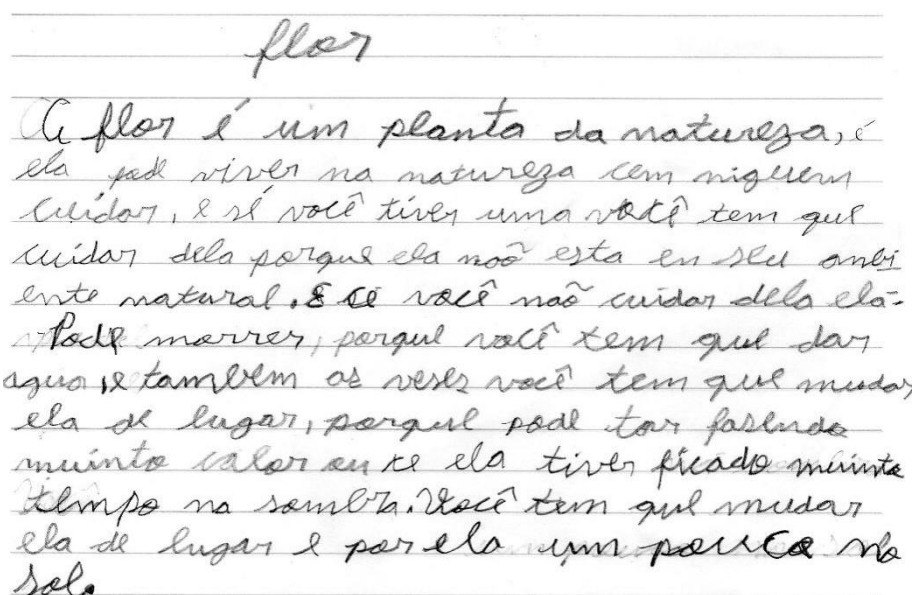 flor
A flor é um planta da natureza, é
ela pode viver na natureza cem niguem
cuidar, e sé você tiver uma você tem que
cuidar dela porque ela noã esta en seu anbi
ente natural. E ce você naõ cuidar dela ela-
Pode morrer, porque você tem que dar
agua, e tambem as veses você tem que mudar
ela de lugar, porque pode tar fasendo
muinto calor ou se ela tiver ficado muinto
tempo na sombra. Você tem que mudar
ela de lugar e por ela um pouco no
sol.